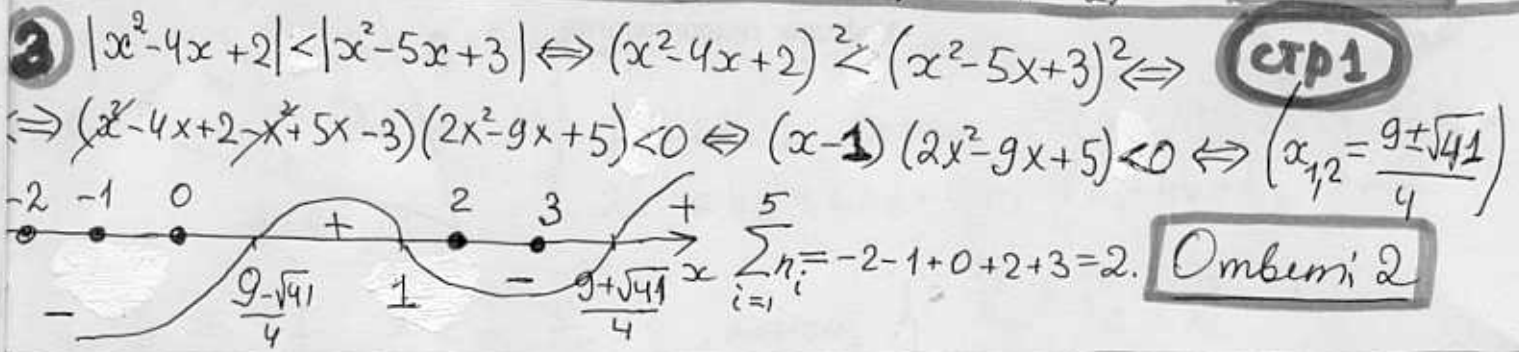 3 |x²-4x+2|<|x²-5x+3| ⇔ (x²-4x+2)²<(x²-5x+3)² ⇔ стр1
⇔ (x²-4x+2-x²+5x-3)(2x²-9x+5)<0 ⇔ (x-1)(2x²-9x+5)<0 ⇔ (x₁,₂=(9±√41)/4)
-2 -1 0 + 2 3 +
- (9-√41)/4 1 - (9+√41)/4 x
∑_{i=1}^{5} nᵢ=-2-1+0+2+3=2. Ответ: 2